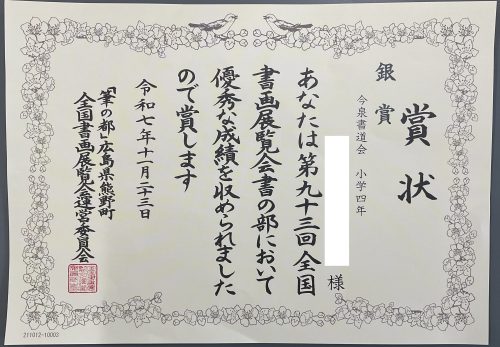 賞状
銀賞
今泉書道会 小学四年
様
あなたは第九十三回全国
書画展覧会書の部において
優秀な成績を収められました
ので賞します
令和七年十一月二十三日
「筆の都」広島県熊野町
全国書画展覧会運営委員会
211012-10003